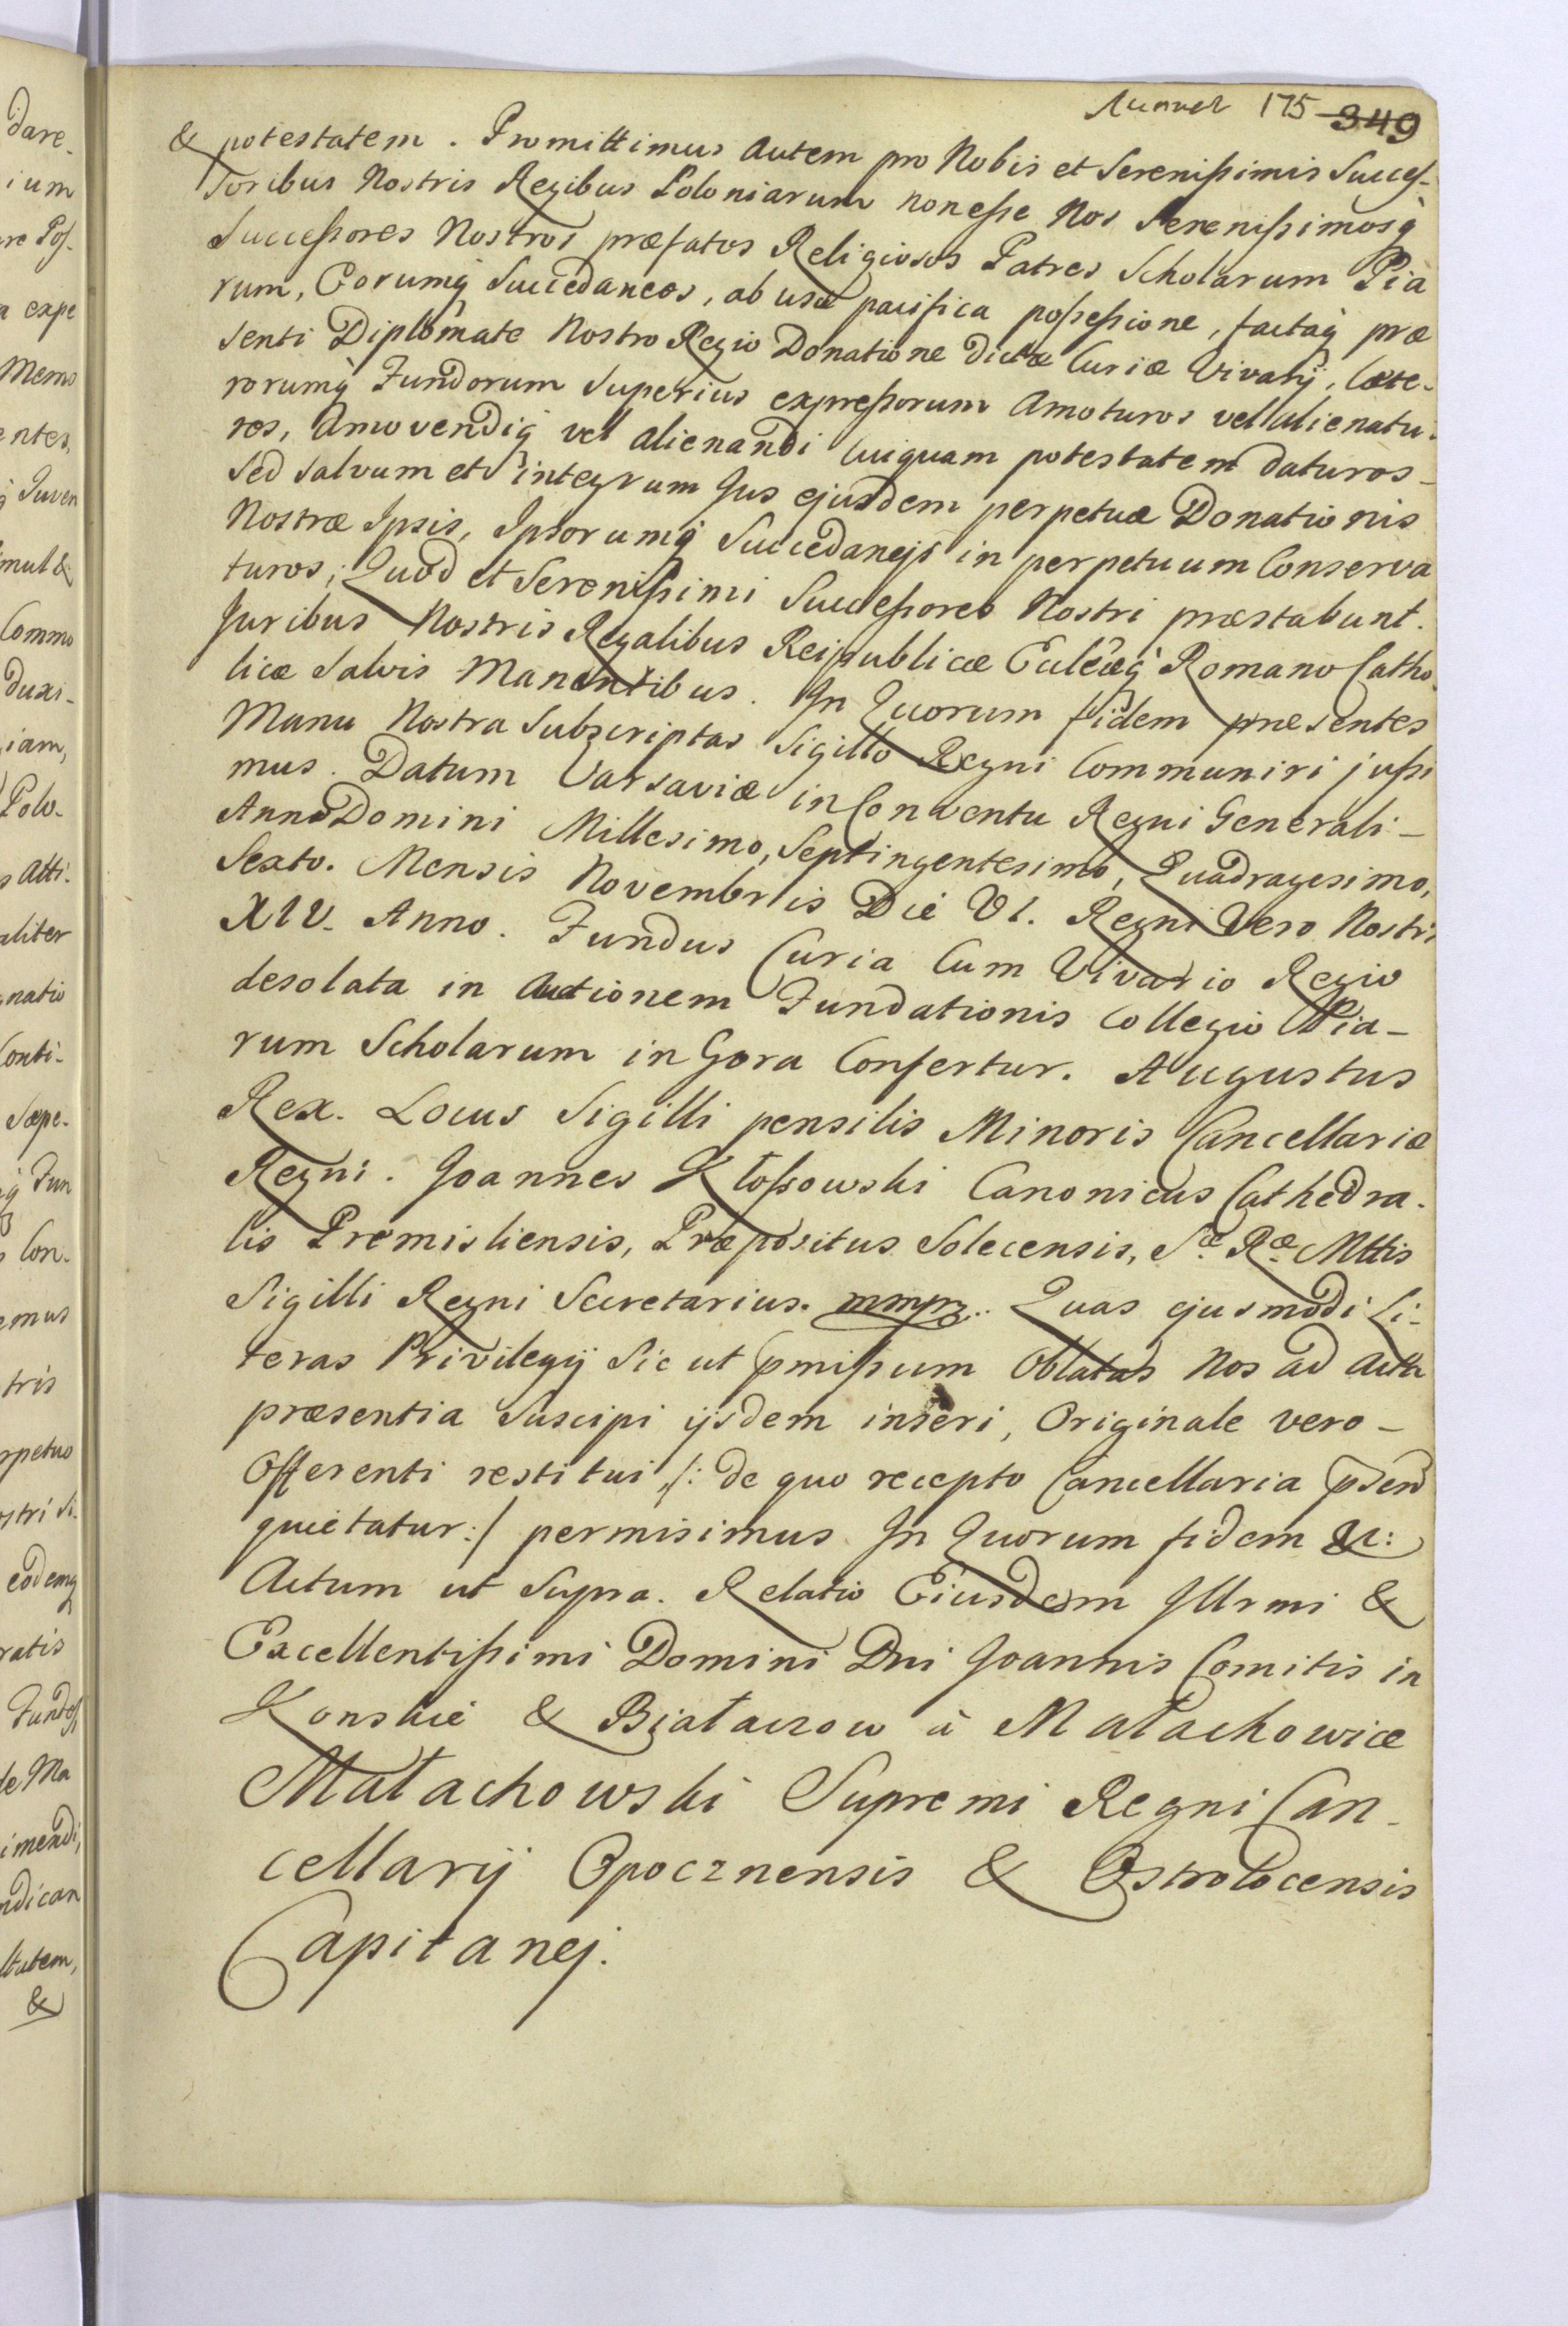 175 349
& potestatem. Promittimus autem pro Nobis et Serenißimis Succes-
soribus Nostris Regibus Poloniarum non eße Nos Serenißimosq̀
Succeßores Nostros præfatos Religiosos Patres Scholarum Pia
rum, Eorumq̀ Succedaneos, ab usu pacifica poßeßione, factaq̀ præ
senti Diplomate Nostro Regio Donatione dictæ Curiæ Vivarij, Cæte-
rorumq̀ Fundorum Superius expreßorum Amoturos vel alienatu-
ros, Amovendiq̀ vel alienandi Cuiquam potestatem daturos-
Sed salvum et integrum Jus ejusdem perpetuæ Donationis
Nostræ Ipsis, Ipsorumq̀ Succedanejs in perpetuum Conserva
turos; Quod et Serenißimi Succeßores Nostri præstabunt.
Juribus Nostris Regalibus Reipublicæ Eccleæq̀ Romano Catho-
licæ Salvis Manentibus. In Quorum fidem præsentes
Manu Nostra Subscriptas Sigillo Regni Communiri jußi
mus. Datum Varsaviæ in Conventu Regni Generali-
Anno Domini Millesimo, Septingentesimo, Quadragesimo,
Sexto. Mensis Novembris Die VI. Regni Vero Nostri
XIV. Anno. Fundus Curia Cum Vivario Regio
desolata in Auctionem Fundationis Collegio Pia-
rum Scholarum in Gora Confertur. Augustus
Rex. Locus Sigilli pensilis Minoris Cancellariæ
Regni. Joannes Kłoßowski Canonicus Cathedra-
lis Premisliensis, Præpositus Solecensis, Sæ Ræ Mttis
Sigilli Regni Secretarius. mmpr. Quas ejusmodi Li-
teras Privilegij Sic ut pmißum Oblatas Nos ad Acta
præsentia Suscipi ijsdem inseri, Originale vero-
Offerenti restitui /: de quo recepto Cancellaria psens
quietatur :/ permisimus. In Quorum fidem &c:
Actum ut Supra. Relatio Eiusdem Illrmi &
Excellentißimi Domini Dni Joannis Comitis in
Konskie & Białaczow à Małachowice
Małachowski Supremi Regni Can-
cellarij Opocznensis & Ostrołocensis
Capitanej.